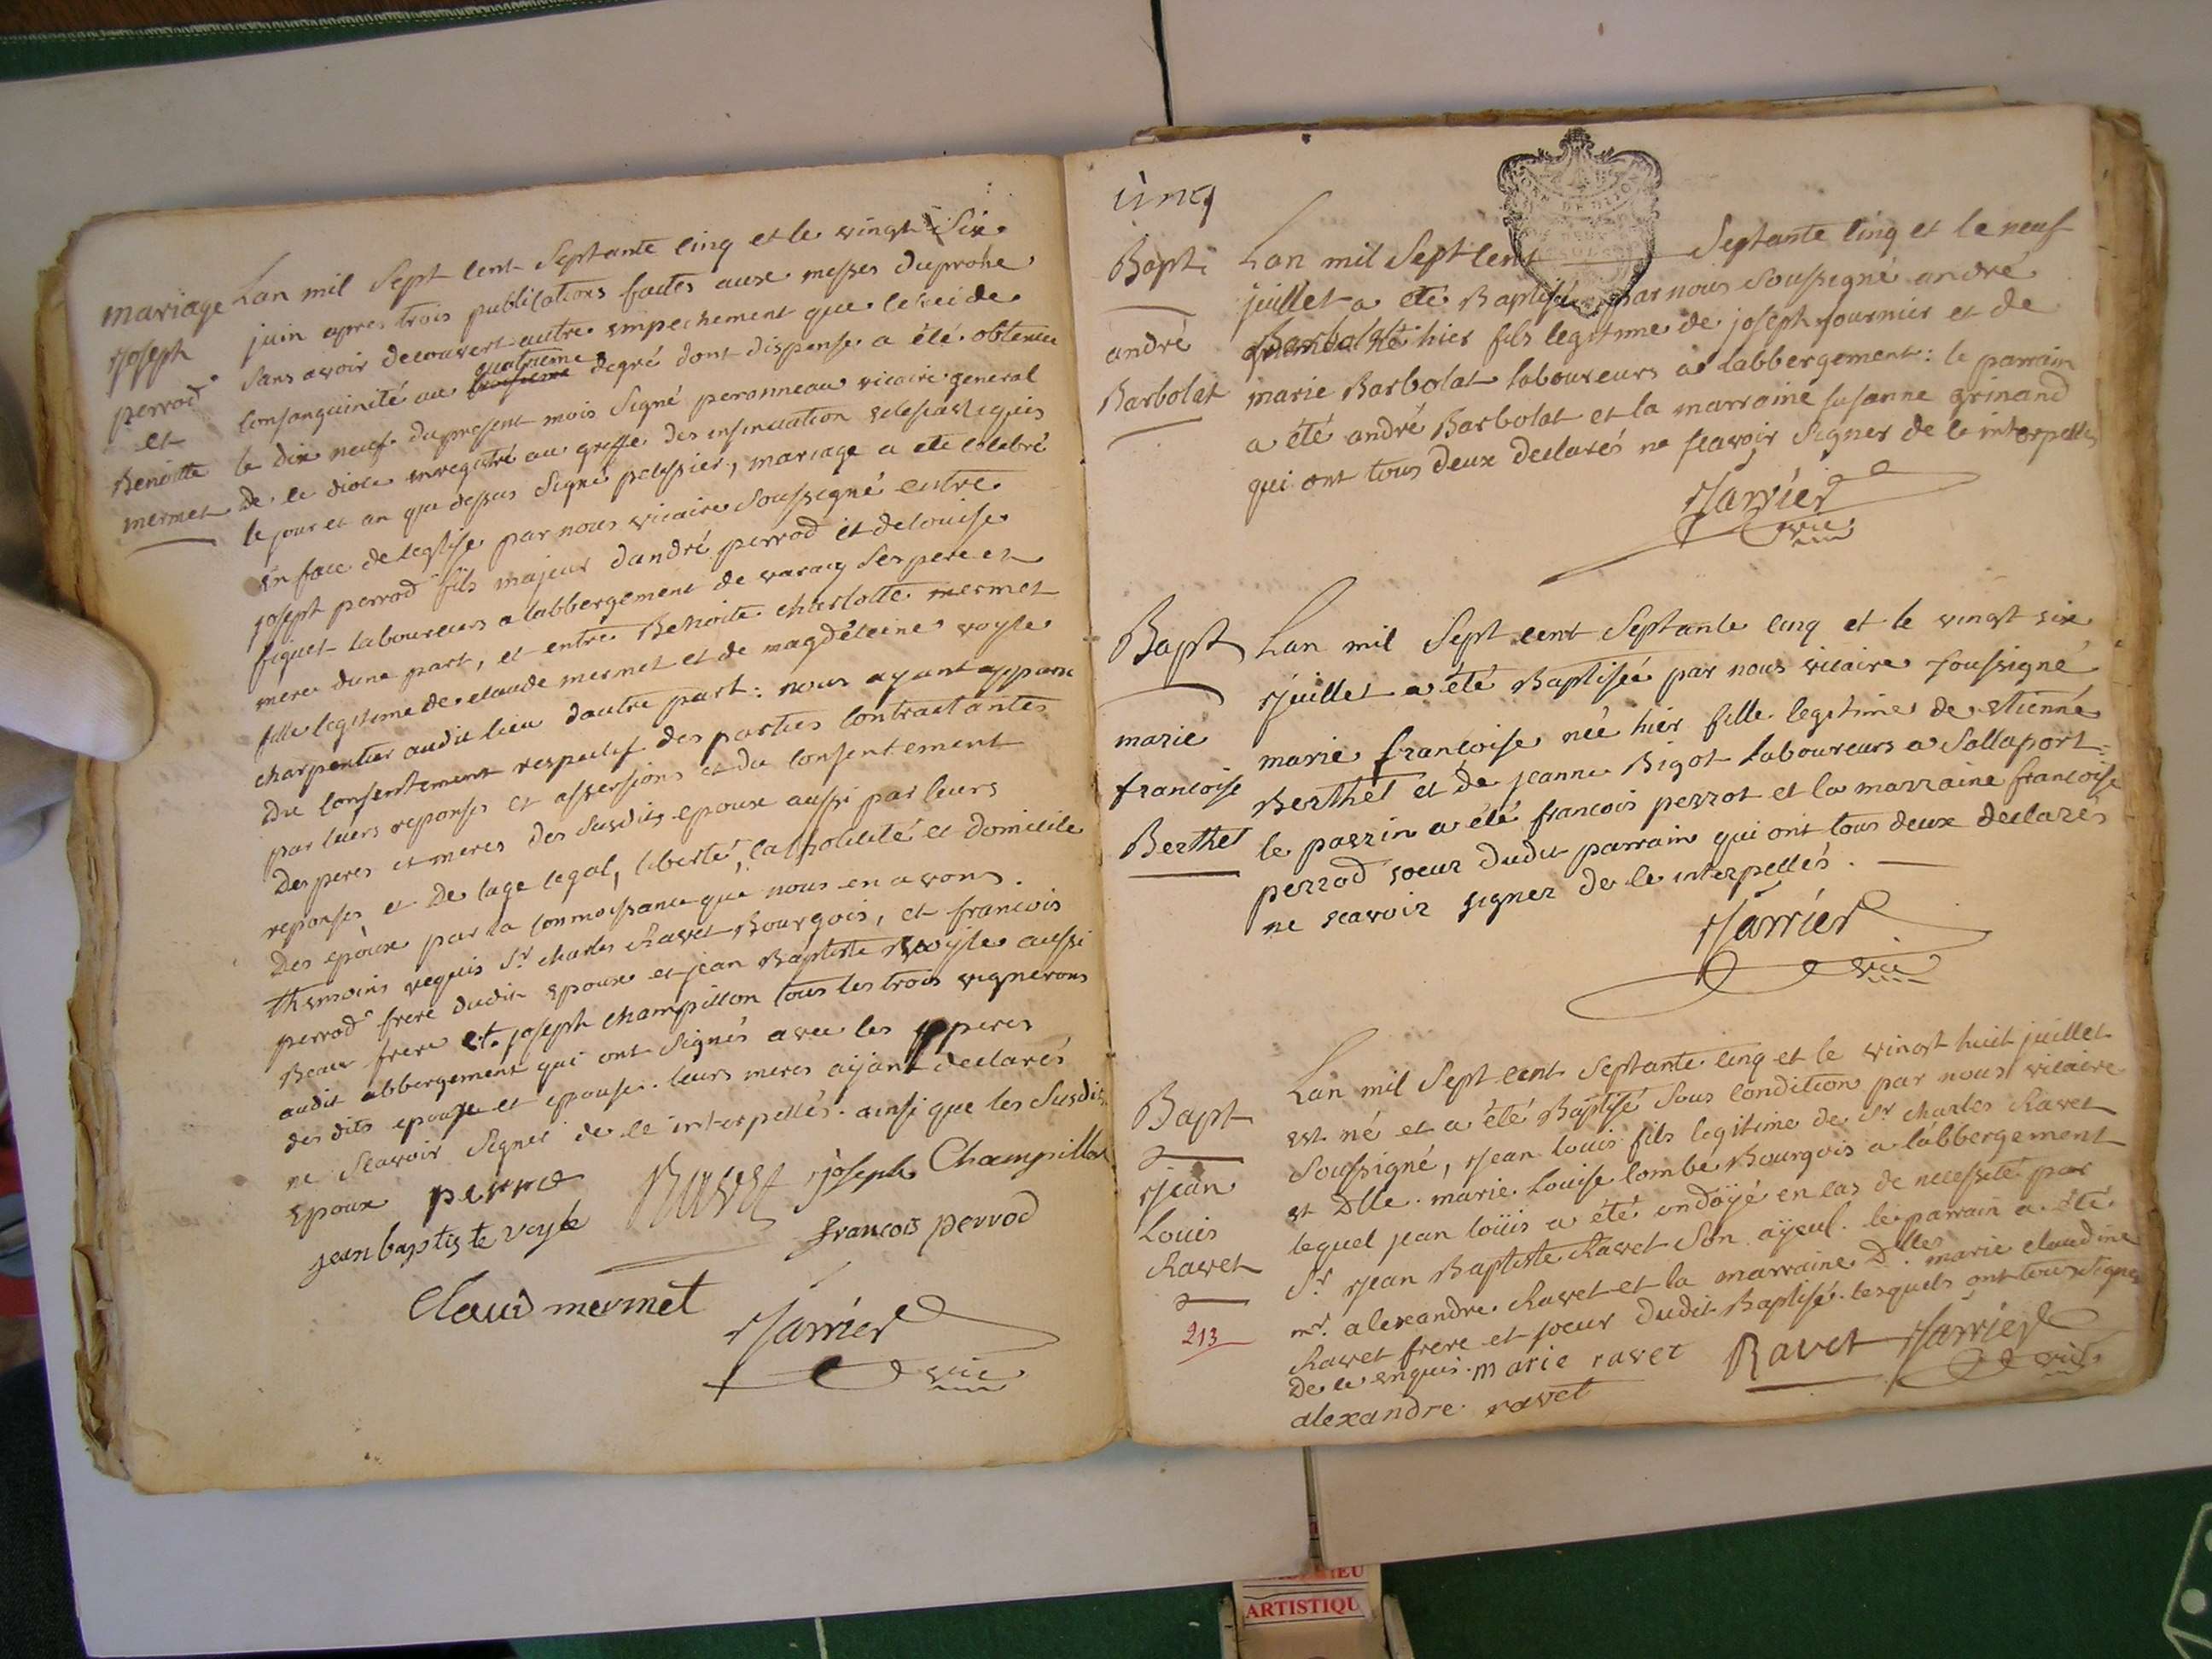 mariage
joseph
perrod
et
Benoitte
mermet
Lan mil Sept Cent Septante Cinq et le vingt Six
juin apres trois publications faites aux messes du prône
Sans avoir decouvert autre empechement que celui de
quatrieme
Consanguinité au troisieme degré dont dispense a été obtenue
le dix neuf du present mois Signé peronneau vicaire general
De ce diocè enregistré au greffe des insinuation eclesiastiques
le jour et an que dessus Signé pelissier, mariage a eté Celebré
en face de leglise par nous vicaire Soussigné entre
joseph perrod fils majeur dandré perrod et delouise
figuet laboureurs a labbergement de varay Ses pere et
mere dune part, et entre Benoite charlotte mermet
fille legitime de claude mermet et de magdeleine voyle
charpentier audit lieu dautre part: nous ayant apparu
Du Consentement respectif des parties Contractantes
par luers reponses et assersions et du Consentement
Des peres et meres des Susdits epoux aussi par leurs
reponses et De lage legal, liberté, Catholicité et domicile
Des epoux par la Connoissance que nous en avons.
themoins requis Sr. charles Ravet Bourgois, et francois
perrod frere dudit epoux et jean Baptiste voyle aussi
Beau frere et joseph champillon tous les trois vignerons
audit abbergement qui ont Signés avec les peres
des dits epoux et epouse. leurs meres aÿant declarés
ne Scavoir Signer de ce interpellés. ainsi que les Susdits
Epoux perrod Ravet joseph Champillon
jean baptiste voyle francois perrod
Claud mermet Jarrier
vic
cinq
Bapt
andré
Barbolat
Lan mil Sept Cent Septante Cinq et le neuf
juillet a eté Baptisé par nous Soussigné andré
Barbolat né hier fils legitime de joseph fournier et de
marie Barbolat laboureurs a labbergement: le parrain
a été andré Barbolat et la marraine susanne grinand
qui ont tous deux declarés ne scavoir Signer de ce interpellés
Jarrier
vic
Bapt
marie
francoise
Berthet
Lan mil Sept cent Septante cinq et le vingt six
juillet a été Baptisée par nous vicaire soussigné
marie francoise née hier fille legitime de etienne
Berthet et de jeanne Bigot laboureurs a Sallaport:
le parrin a été francois perrot et la marraine francoise
perrod soeur dudit parrain qui ont tous deux declarés
ne scavoir signer de ce interpellés.
Jarrier
vic
Bapt
jean
Louis
Ravet
213
Lan mil Sept cent Septante Cinq et le vingt huit juillet
est né et a été Baptisé Sous Condition par nous vicaire
Soussigné, jean louis fils legitime de Sr charles Ravet
et Dlle. marie Louise Combe Bourgois a labbergement
lequel jean loüis a été ondoÿé en Cas de necessité par
Sr. jean Baptiste Ravet Son aÿeul. le parrain a été
mr. alexandre Ravet et la marraine Dlle. marie claudine
Ravet frere et soeur dudit Baptisé. lesquels ont tous Signés
De ce enquis. marie ravet Ravet Jarrier
alexandre ravet vic
ARTISTIQU